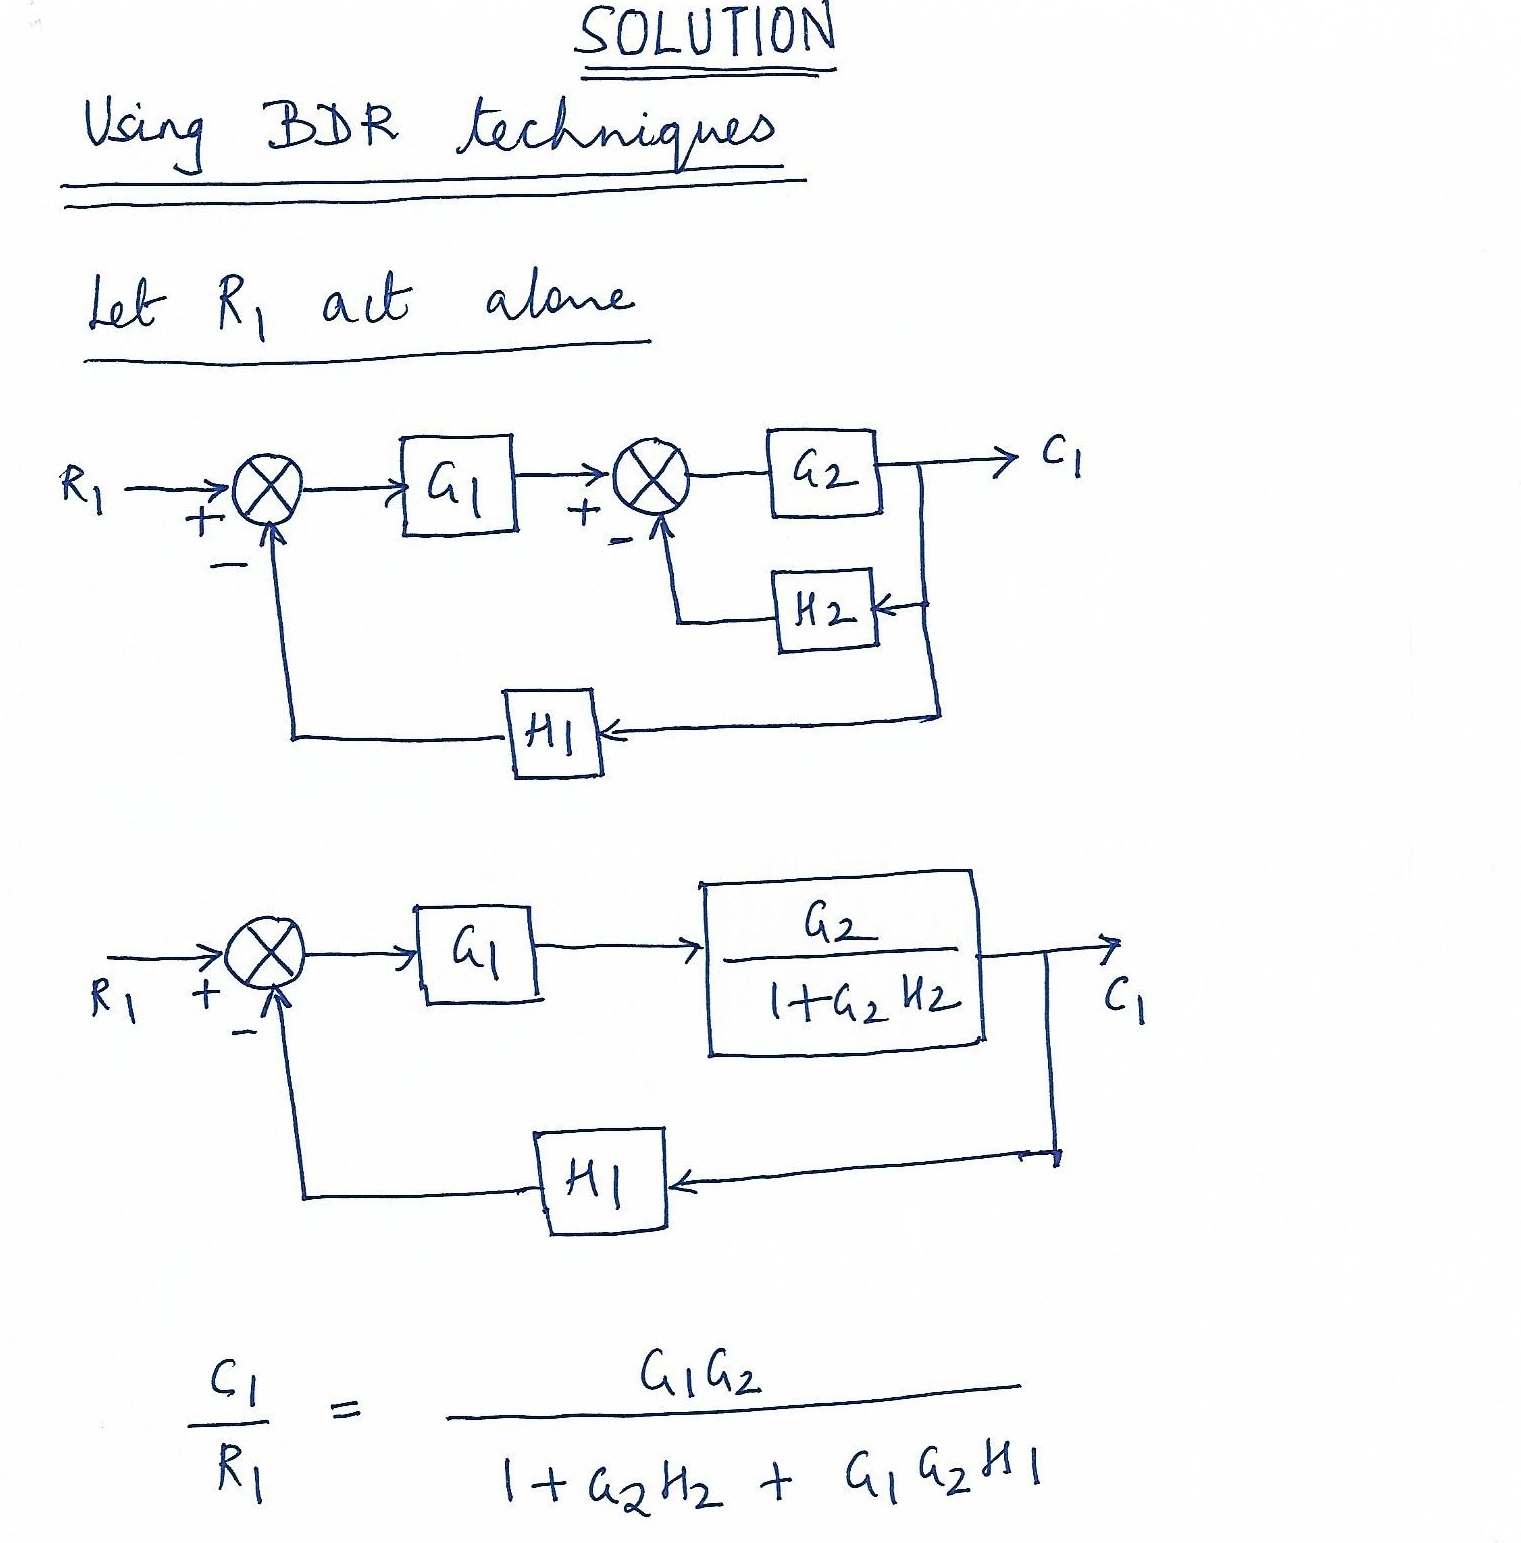 SOLUTION
Using BDR techniques
Let R1 act alone
R1 + - G1 + - G2 C1
H2
H1
R1 + - G1 G2 / 1+G2 H2 C1
H1
C1 / R1 = G1G2 / 1+G2H2 + G1G2H1